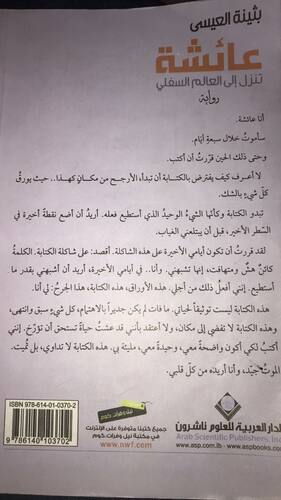 بثينة العيسى
عائشة
تنزل إلى العالم السفلي
رواية
أنا عائشة.
سأموتُ خلال سبعةِ أيام.
وحتى ذلك الحين قررتُ أن أكتب.
لا أعرف كيف يفترض بالكتابة أن تبدأ، الأرجح من مكانٍ كهذا.. حيث يورقُ
كل شيءٍ بالشك.
تبدو الكتابة وكأنها الشيءُ الوحيد الذي أستطيع فعله. أريدُ أن أضع نقطةً أخيرة في
السّطر الأخير، قبل أن يبتلعني الغياب.
لقد قررتُ أن تكون أيامي الأخيرة على هذه الشاكلة. أقصد: على شاكلة الكتابة. الكلمةُ
كائنٌ هشٌّ ومتهافت، إنها تشبهني. وأنا.. في أيامي الأخيرة، أريد أن أشبهني بقدر ما
أستطيع. إنني أفعلُ ذلك من أجلي: هذه الأوراق، هذه الكتابة، هذا الجرحُ: لي أنا.
هذه الكتابة ليست توثيقاً لحياتي. ما فات لم يكن جديراً بالاهتمام، كل شيءٍ سبق وانتهى،
وهذه الكتابة لا تفضي إلى مكان، ولا أعتقد بأنني قد عشتُ حياةً تستحق أن تؤرّخ. إنني
أكتبُ لكي أكون واضحةً معي، وحيدةً معي، مليئة بي. هذه الكتابة لا تداوي، بل تُميت.
الموتُ جيّد، وأنا أريده من كل قلبي.
ISBN 978-614-01-0370-2
9 786140 103702
جميع كتبنا متوفرة على الإنترنت
في مكتبة نيل وفرات.كوم
www.nwf.com
نيل وفرات.كوم
الدار العربية للعلوم ناشرون
Arab Scientific Publishers, Inc.
www.asp.com.lb - www.aspbooks.com